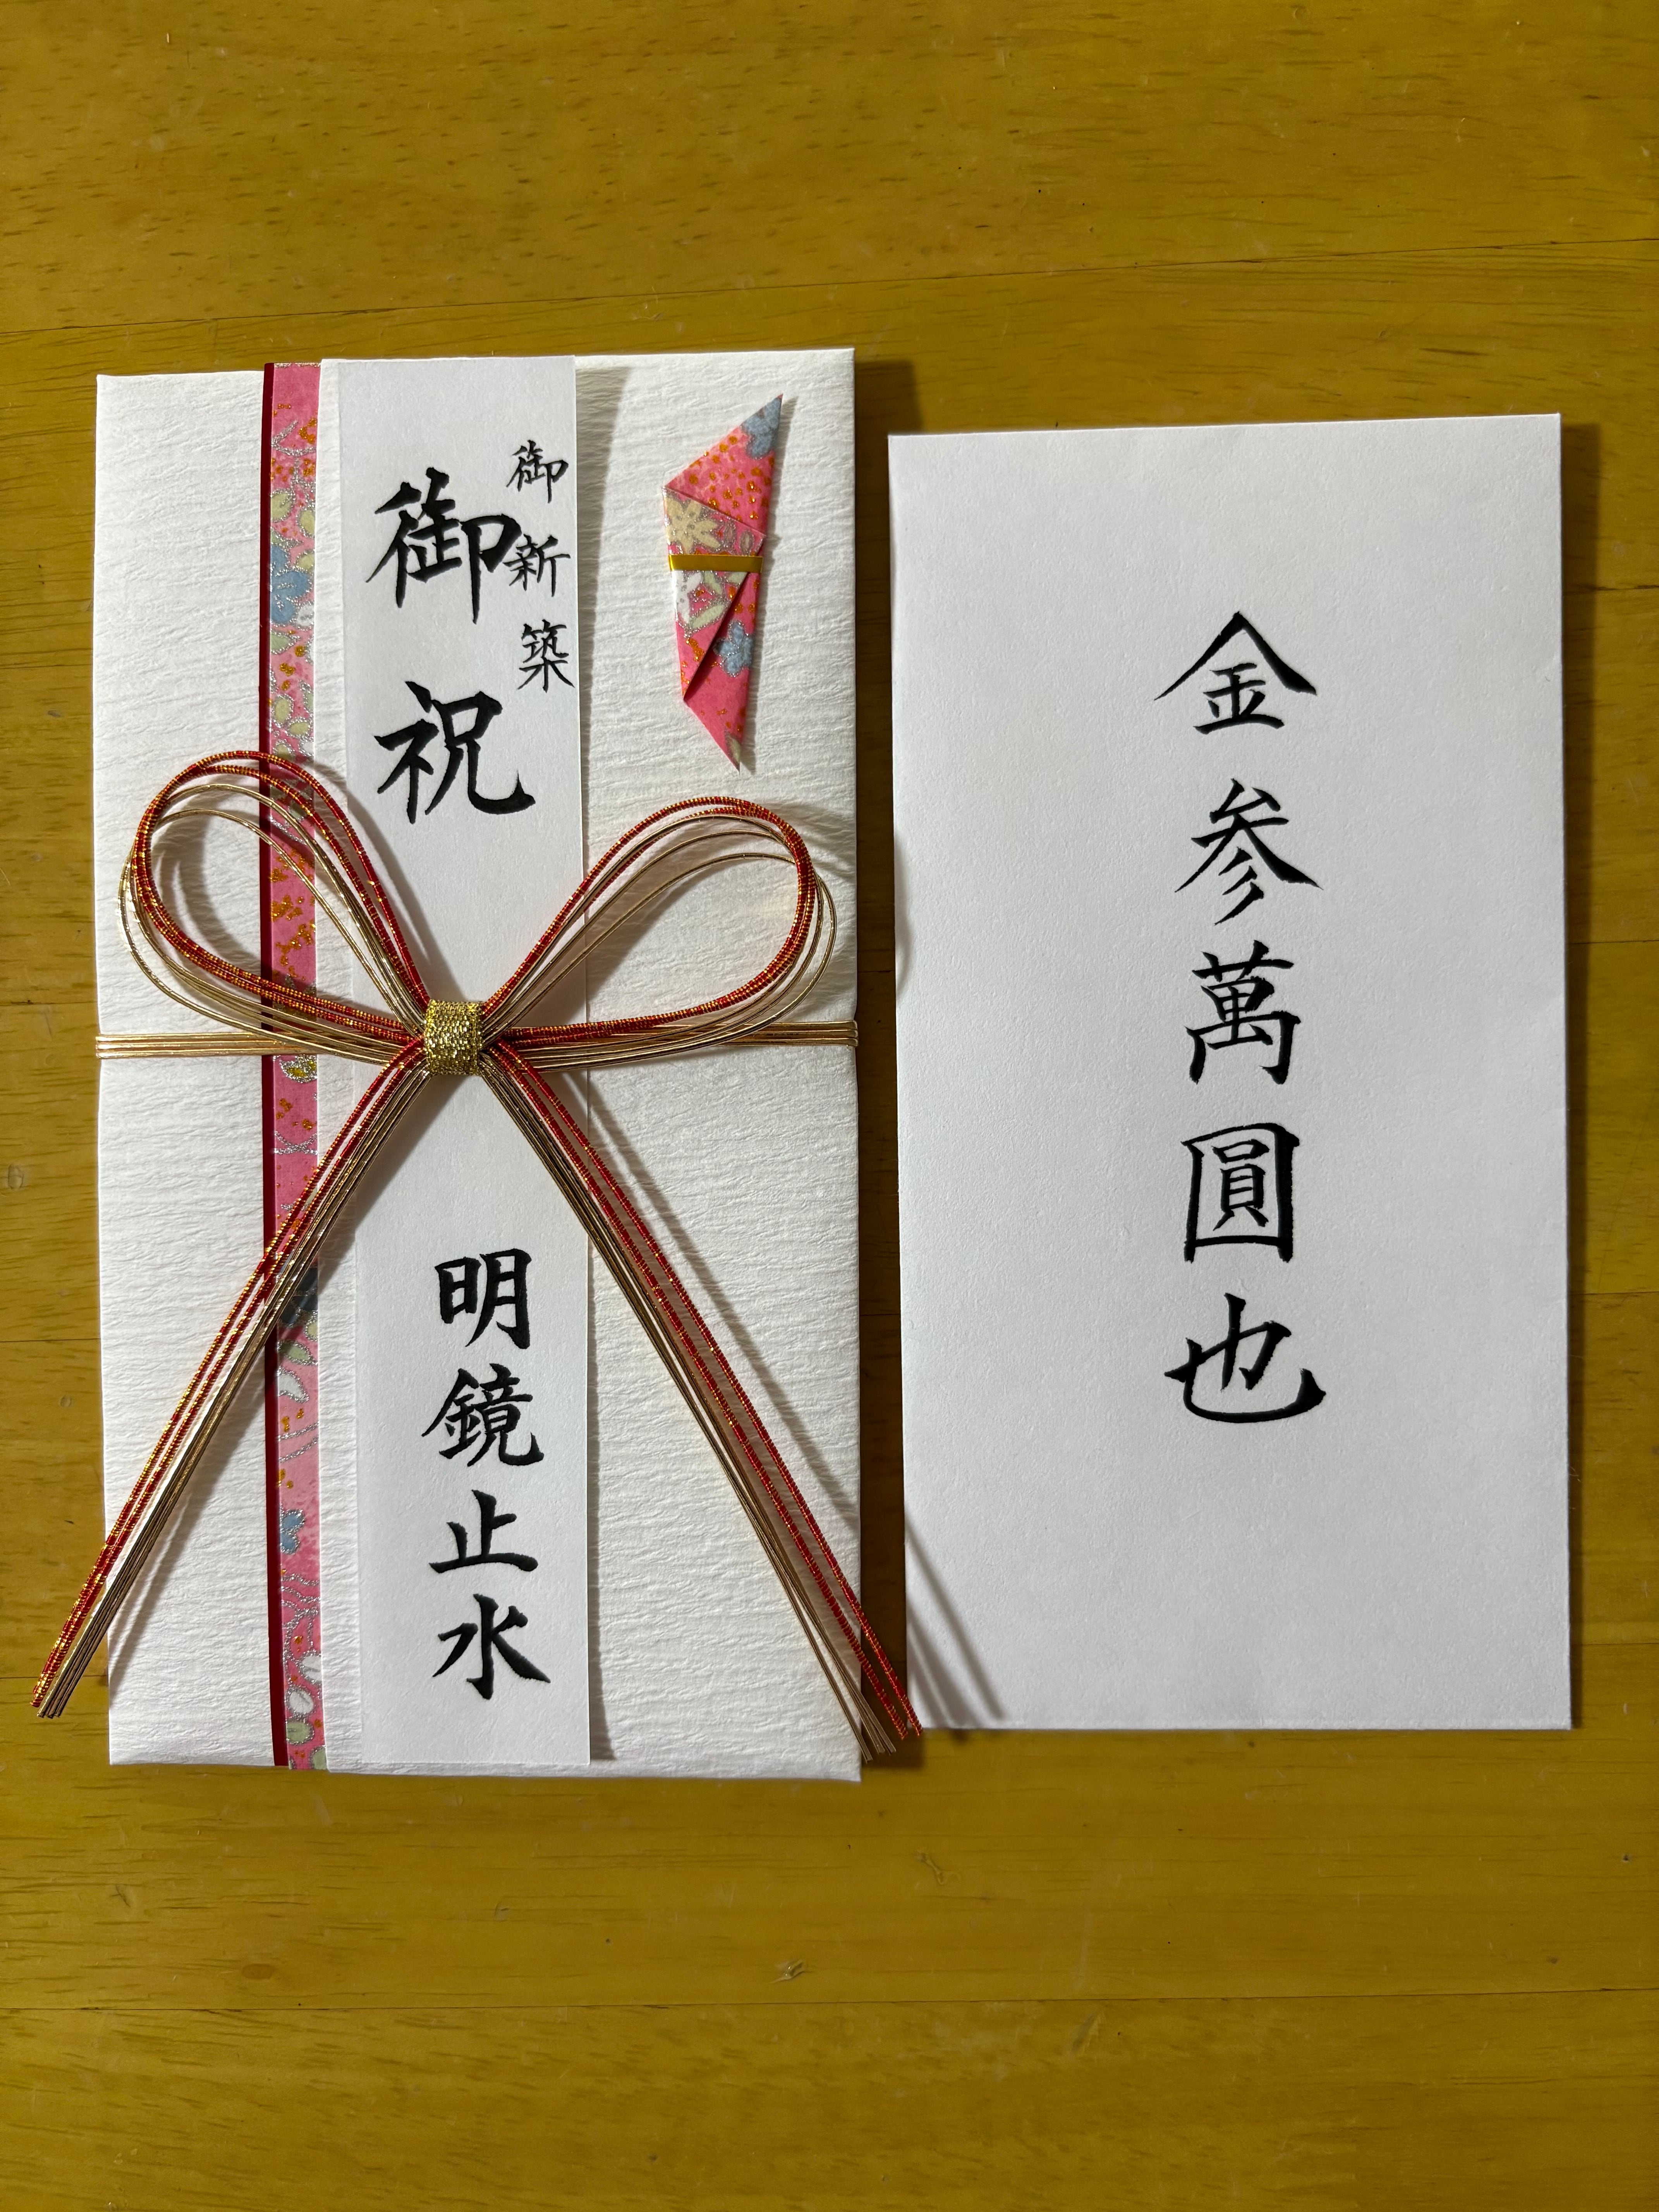 御新築
御祝
明鏡止水
金参萬圓也